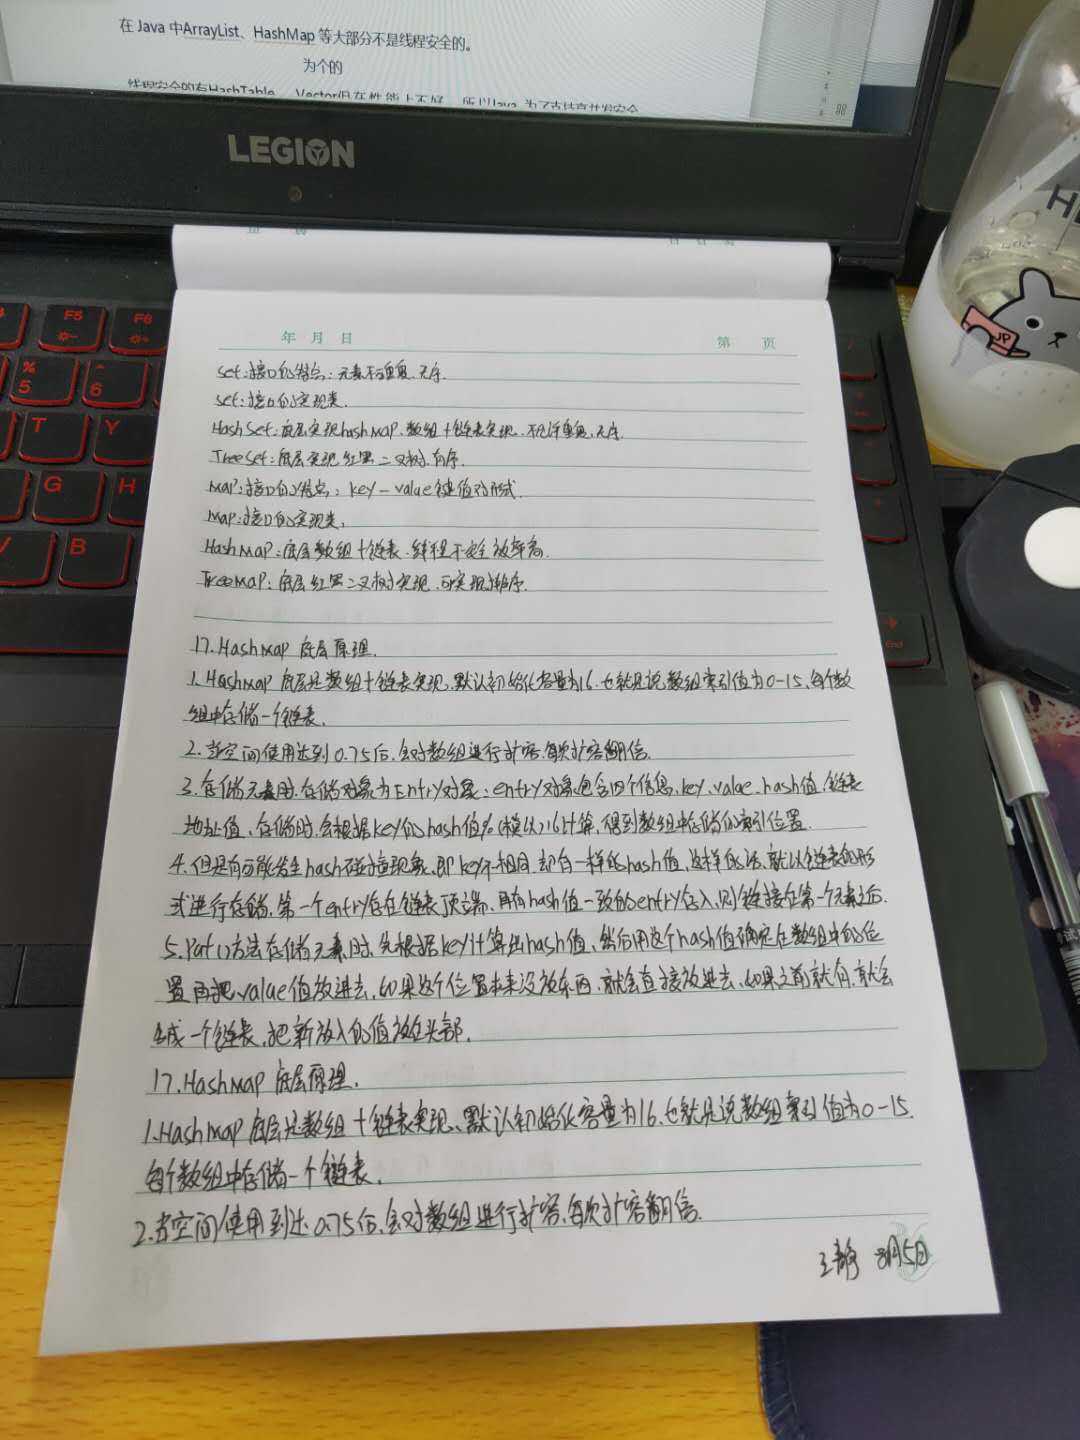 在 Java 中ArrayList、HashMap 等大部分不是线程安全的。
为个的
线程安全的有HashTable、Vector但在性能上不好，所以Java 为了支持高并发安全
88
LEGION
F5
F6
%
5
^
6
T
Y
G
H
V
B
End
JP
年 月 日
第 页
set:接口的特点:元素不重复,无序.
set:接口的实现类.
HashSet:底层实现hashMap,数组+链表实现,不允许重复,无序.
TreeSet:底层实现红黑二叉树,有序.
Map:接口的特点:key-value键值对形式.
Map:接口的实现类:
HashMap:底层数组+链表,线程不安全效率高.
TreeMap:底层红黑二叉树实现,可实现排序.
17.HashMap底层原理.
1.HashMap底层是数组+链表实现,默认初始化容量为16.也就是说数组索引值为0-15,每个数
组中存储一个链表.
2.当空间使用达到0.75后,会对数组进行扩容,每次扩容翻倍.
3.存储元素时,存储对象为Entry对象:entry对象包含四个信息,key、value、hash值,链表
地址值,存储时,会根据key的hash值%(模以)16计算,得到数组中存储的索引位置.
4.但是有可能发生hash碰撞现象,即key不相同,却有一样的hash值,这样的话,就以链表的形
式进行存储,第一个entry存在链表顶端,再有hash值一致的entry存入,则链接在第一个元素之后.
5.Put()方法存储元素时,先根据key计算出hash值,然后用这个hash值确定在数组中的位
置再把value值放进去,如果这个位置本来没放东西,就会直接放进去,如果之前就有,就会
生成一个链表,把新放入的值放在头部.
17.HashMap底层原理.
1.HashMap底层是数组+链表实现、默认初始化容量为16.也就是说数组索引值为0-15.
每个数组中存储一个链表.
2.当空间使用到达0.75后,会对数组进行扩容,每次扩容翻倍.
王静 8月5日